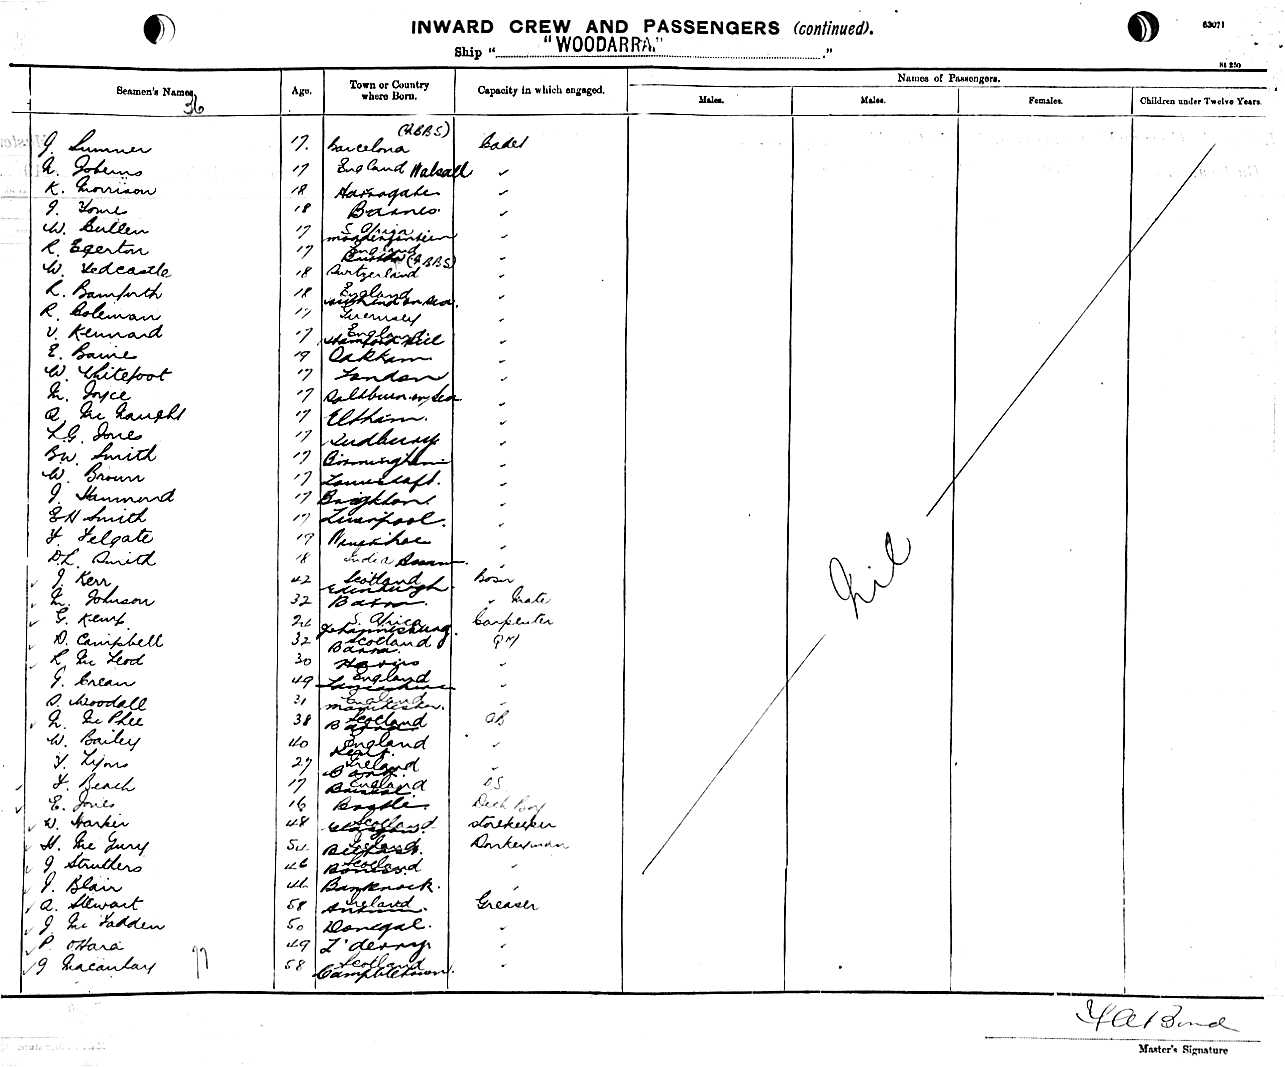 INWARD CREW AND PASSENGERS (continued).
63071
Ship "WOODARRA."
St 250
Seamen's Names. Age. Town or Country where Born. Capacity in which engaged. Names of Passengers.
Males. Males. Females. Children under Twelve Years.
36
J. Sumner 17. Barcelona (ABBS) Cadet
A. 17 England Walsall "
K. Morrison 18 Harrogate "
J. 18 Barnes "
W. Bullen 17 S. Africa "
R. Egerton 17 England "
W. Tedcastle 18 Switzerland (ABBS) "
R. Bamforth 18 England Southend on Sea. "
R. Coleman 17 Guernsey "
V. Kennard 17 England Stamford Hill "
E. Baine 19 Oakham "
W. Whitefoot 17 London "
M. Joyce 17 Saltburn-on-Sea "
A. McNaught 17 Eltham. "
L.G. Jones 17 Sudbury "
B.W. Smith 17 Birmingham "
W. Brown 17 Lowestoft. "
J. Hammond 17 Brighton "
E H Smith 17 Liverpool. "
F. Felgate 17 "
D.L. Smith 18 India Assam "
J. Kerr 42 Scotland Edinburgh Bosn
M. Johnson 32 Barra. " Mate
G. Kemp 24 S. Africa Johannesburg. Carpenter
D. Campbell 32 Scotland Barra. QM
R. McLeod 30 Harris "
J. Crean 49 England Lancashire "
S. Woodall 31 England Manchester. "
N. McPhee 38 Scotland AB
W. Bailey 40 England Kent. "
F. Lyons 27 Ireland "
F. Beach 17 England Bristol OS
E. Jones 16 Bootle. Deck Boy
W. Harkin 48 Scotland Glasgow. Storekeeper
H. McGury 54 Ireland Belfast. Donkeyman
J. Struthers 46 Scotland Boness. "
J. Blair 44 Banknock. "
A. Stewart 58 Ireland Antrim. Greaser
J. McFadden 50 Donegal. "
P. O'Hara 49 L'derry "
J. Macaulay 58 Scotland Campbeltown. "
77
Nil
Master's Signature